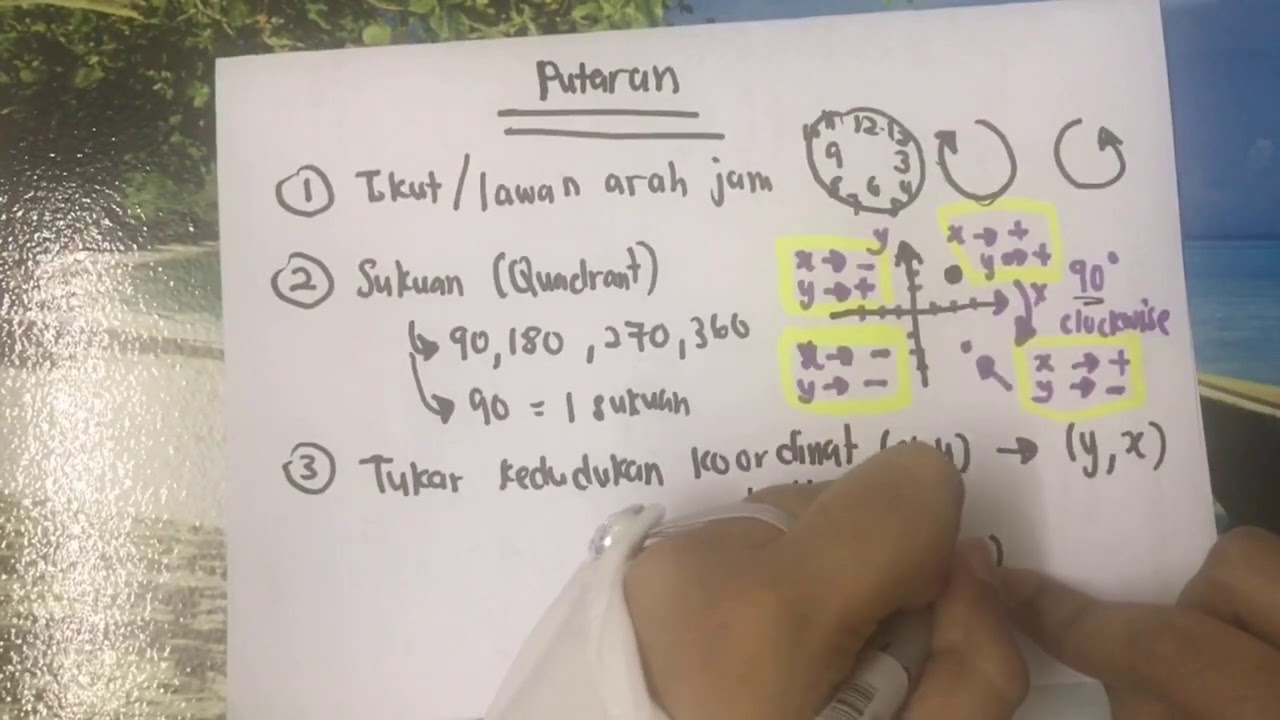 Putaran
① Ikut/lawan arah jam
12 3 6 9
② Sukuan (Quadrant)
↳ 90, 180, 270, 360
↳ 90 = 1 sukuan
y
x
x → -
y → +
x → +
y → +
90°
clockwise
x → -
y → -
x → +
y → -
③ Tukar kedudukan koordinat → (y, x)